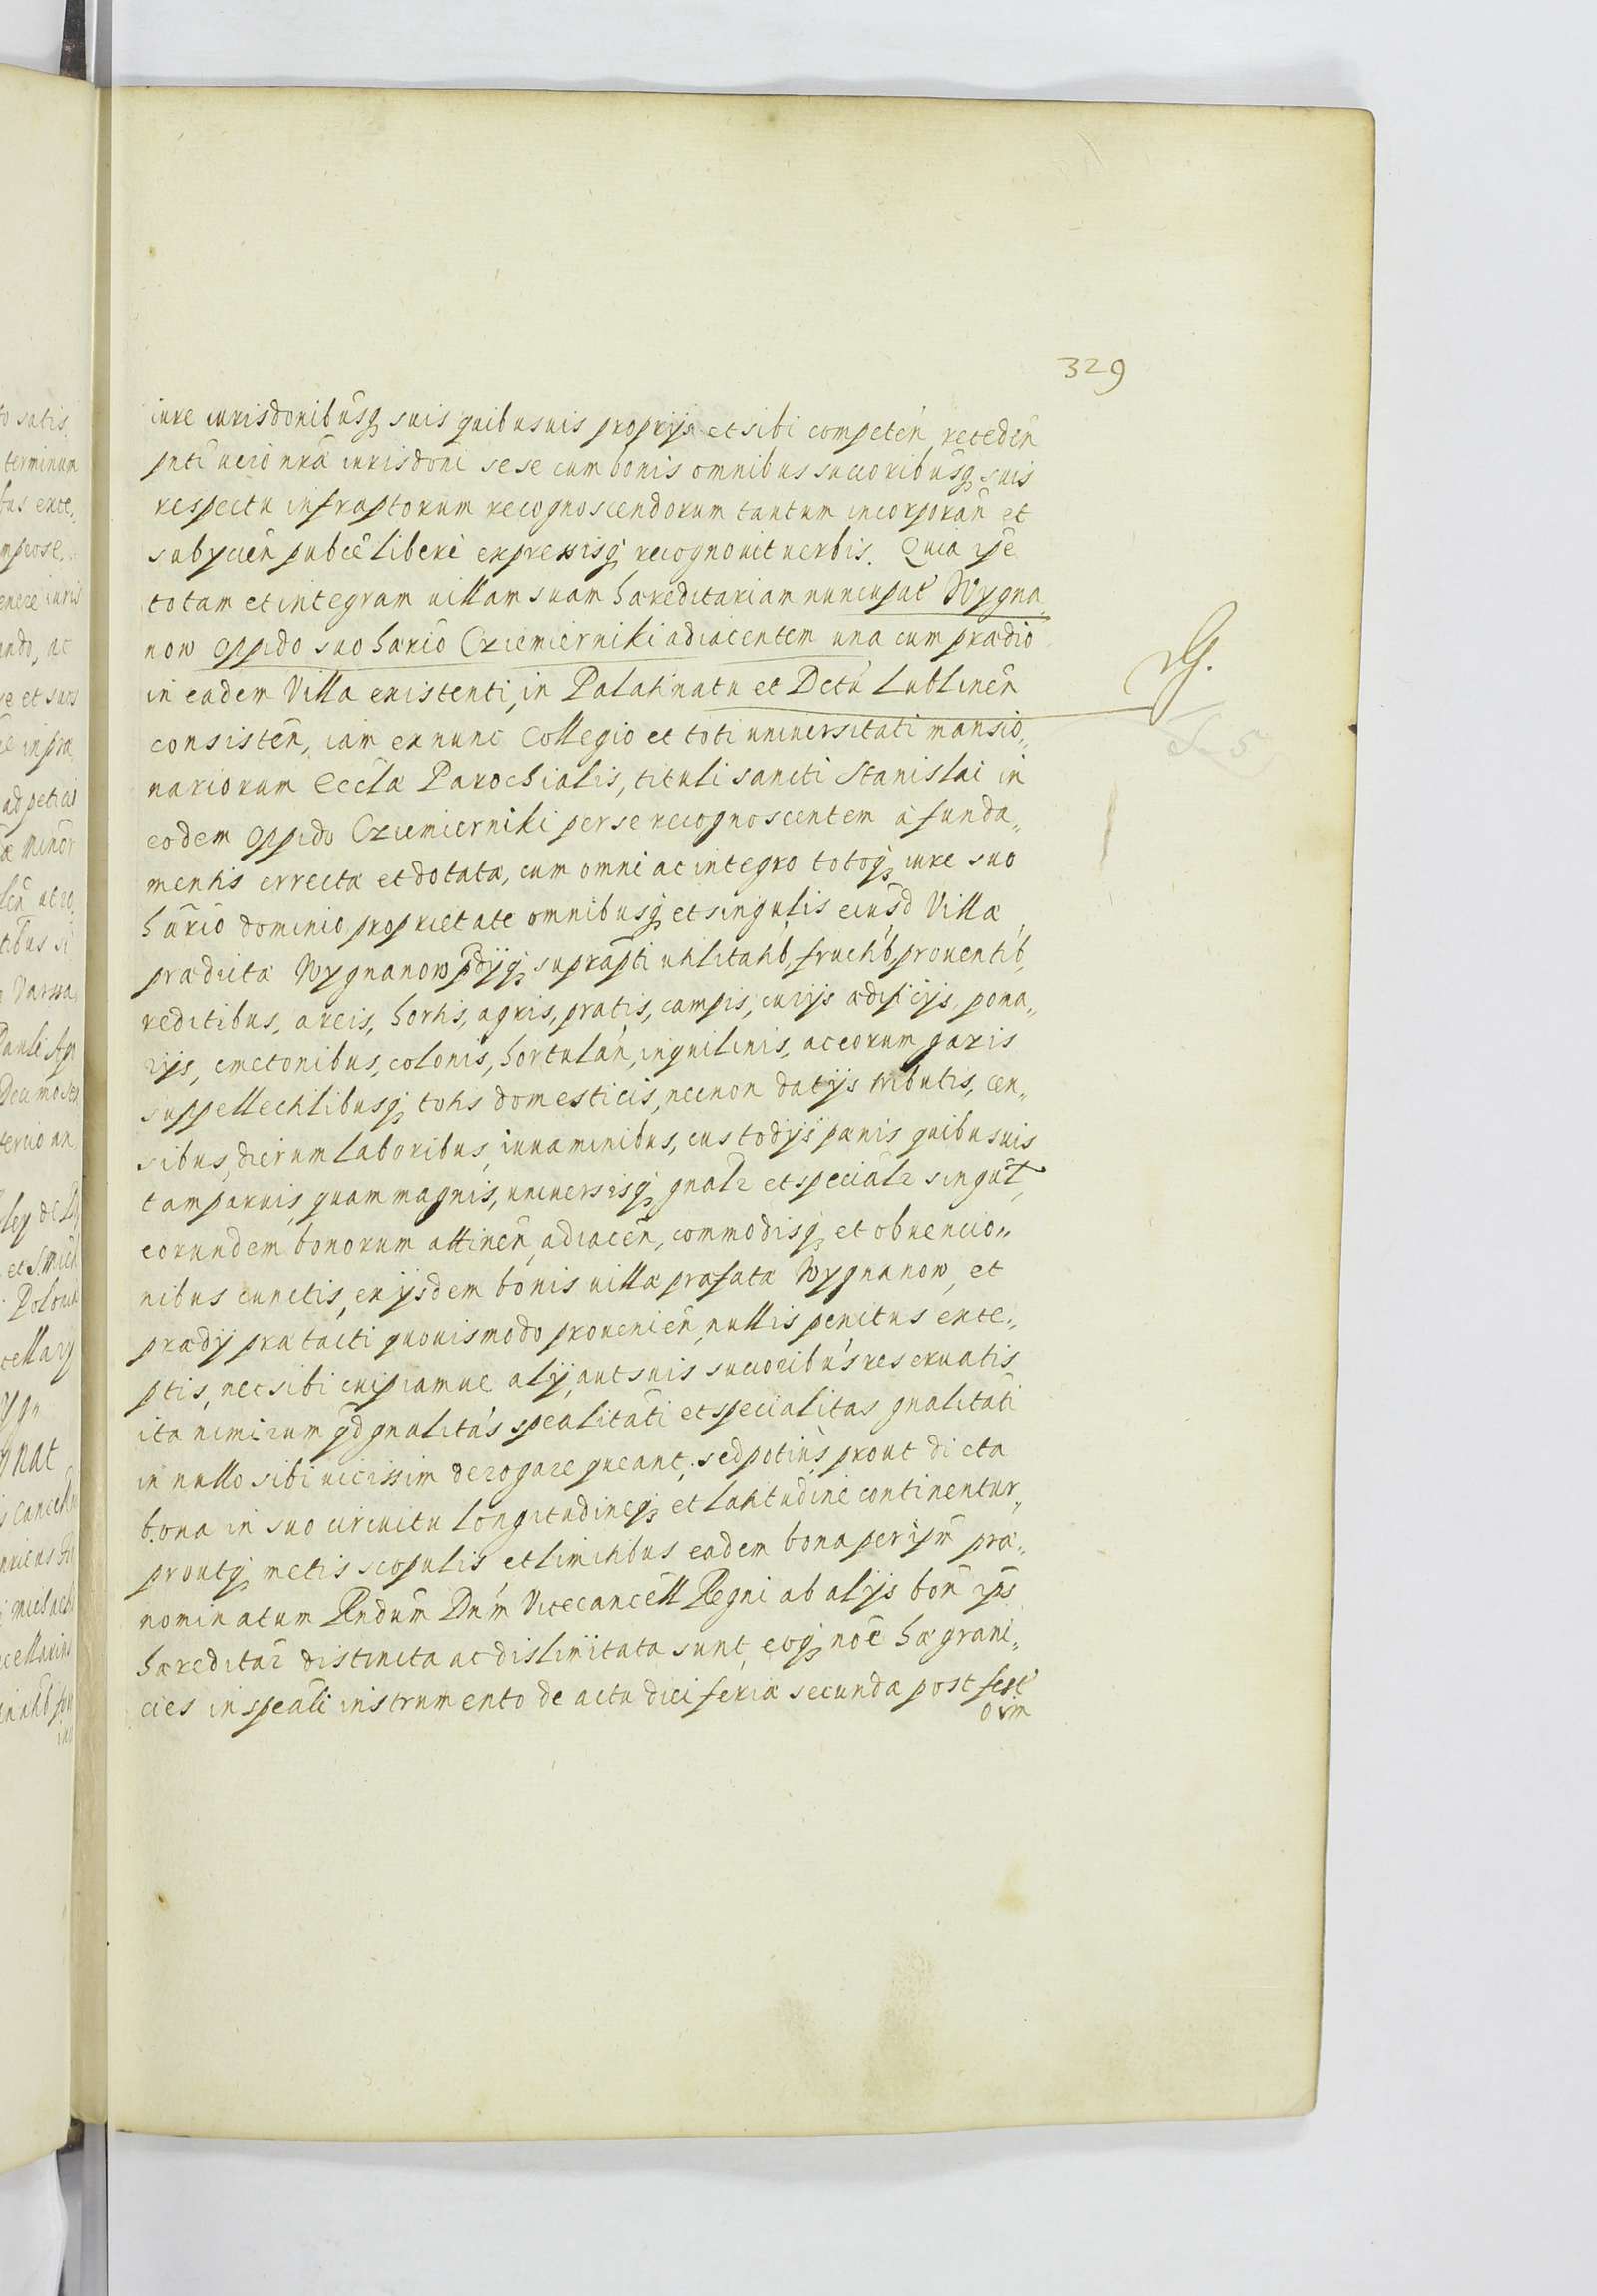 329
iure iurisdonibusq; suis quibusuis proprijs et sibi competeń recedeń
pnti uero nrã iurisdoni sese cum bonis omnibus succoribusq; suis
respectu infraptorum recognoscendorum tantum incorporãn et
subycień pubcẽ liberè expressisq; recognouit uerbis. Quia ipẽ
totam et integram uillam suam hæreditariam nuncupat̃ Wygna,
now oppido suo hærio Czemierniki adiacentem una cum prædio
in eadem Villa existenti, in Palatinatu et Dctũ Lublineñ
consisteñ, iam ex nunc Collegio et toti uniuersitati mansio„
nariorum Eccla Parochialis, tituli sancti Stanislai in
eodem oppido Czemierniki per se recognoscentem à funda„
mentis errectæ et dotatæ, cum omni ac integro totoq; iure suo
hãrio dominio proprietate omnibusq; et singulis eiusd Villæ
prædictæ Wygnanow pdijq; suprapti utilitatib, fructib, prouentib,
reditibus, areis, hortis, agris, pratis, campis, curijs ædificijs, poma„
rijs, cmetonibus, colonis, hortulań, inquilinis, ac eorum gazis
suppellectilibusq; totis domesticis, necnon datijs tributis, cen„
sibus, dierum laboribus, iuuaminibus, custodijs pænis quibusuis
tam paruis, quam magnis, uniuersisq; gnalr et specialr singul̃,
eorundem bonorum attineñ, adiaceñ, commodisq; et obuencio„
nibus cunctis, ex ijsdem bonis uillæ præfatæ Wygnanow, et
prædij prætacti quouismodo prouenień, nullis penitus exce„
ptis, nec sibi cuipiamue alij, aut suis succoribus reseruatis
ita nimirum qd gnalitas spealitati et specialitas gnalitati
in nullo sibi uicissim derogare queant, sed potius prout dicta
bona in suo circuitu longitudineq; et latitudine continentur,
proutq; metis scopulis et limitibus eadem bona per ipm præ„
nominatum Rndum Dnm Vicecancell Regni ab alijs bon ips
hæreditar distincta ac dislimitata sunt, eoq; noẽ hæ grani„
cies in speali instrumento de actu diei feria secunda post fest